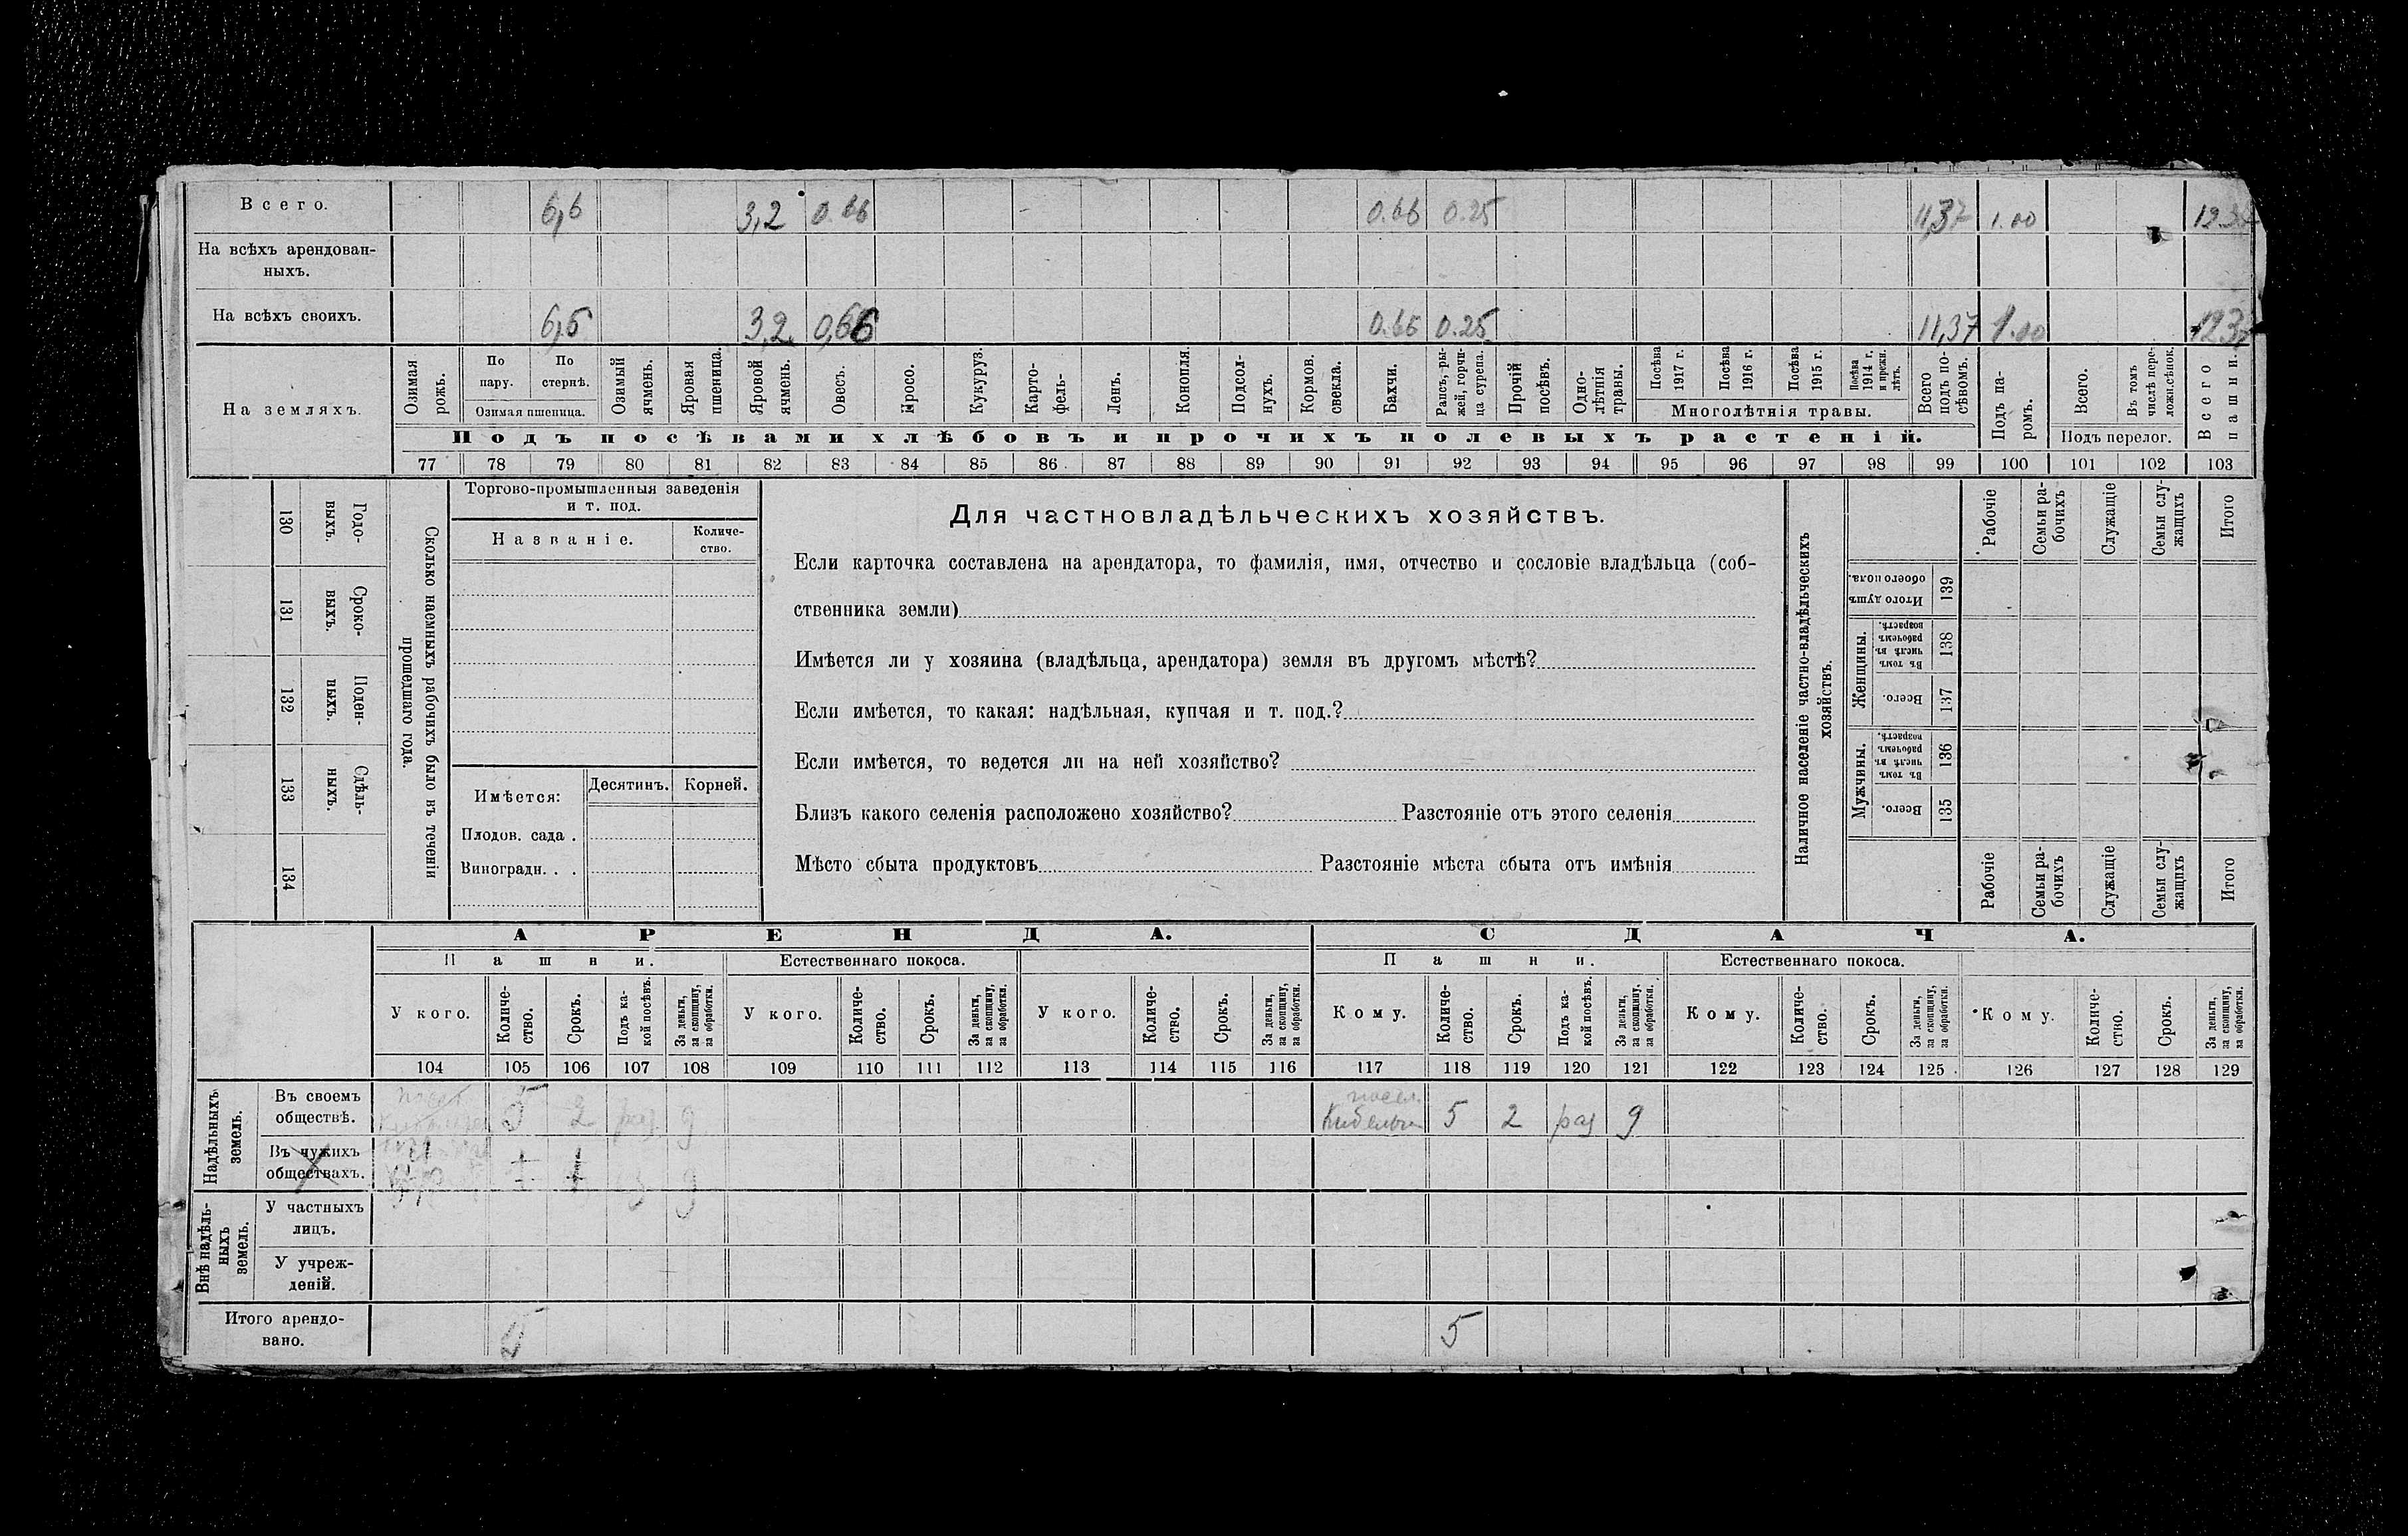 Всего. 6,6 3,2 0.66 0.66 0.25 11,37 1.00
На всѣхъ арендован-
ныхъ.
На всѣхъ своихъ. 6,6 3,2 0,66 0.66 0.25 11,37 1.00
На земляхъ.
Озимая
рожь.
По
пару.
По
стернѣ.
Озимая пшеница.
Озимый
ячмень.
Яровая
пшеница.
Яровой
ячмень.
Овесъ.
Просо.
Кукуруз.
Карто-
фель-
Ленъ.
Конопля.
Подсол-
нухъ.
Кормов.
свекла.
Бахчи.
Рапсъ, ры-
жей, горчи-
ца сурепа.
Прочій
посѣвъ.
Одно-
лѣтнія
травы.
Посѣва
1917 г.
Посѣва
1916 г.
Посѣва
1915 г.
Посѣва
1914 г.
и прежн.
лѣтъ.
Многолѣтнія травы.
Всего
подъ по-
сѣвомъ.
Подъ па-
ромъ.
Всего.
Въ томъ
числѣ пере-
ложн.сѣнок.
Подъ перелог.
Всего
пашни.
Подъ посѣвами хлѣбовъ и прочихъ полевыхъ растеній.
77 78 79 80 81 82 83 84 85 86 87 88 89 90 91 92 93 94 95 96 97 98 99 100 101 102 103
130 Годо-
выхъ.
131 Сроко-
выхъ.
132 Поден-
ныхъ.
133 Сдѣль-
ныхъ.
134
Сколько наемныхъ рабочихъ было въ теченіи
прошедшаго года.
Торгово-промышленныя заведенія
и т. под.
Названіе.
Количе-
ство.
Имѣется:
Десятинъ. Корней.
Плодов. сада .
Виноградн. . .
Для частновладѣльческихъ хозяйствъ.
Если карточка составлена на арендатора, то фамилія, имя, отчество и сословіе владѣльца (соб-
ственника земли)
Имѣется ли у хозяина (владѣльца, арендатора) земля въ другомъ мѣстѣ?
Если имѣется, то какая: надѣльная, купчая и т. под.?
Если имѣется, то ведется ли на ней хозяйство?
Близъ какого селенія расположено хозяйство? Разстояніе отъ этого селенія
Мѣсто сбыта продуктовъ Разстояніе мѣста сбыта отъ имѣнія
Наличное населеніе частно-владѣльческихъ
хозяйствъ.
Рабочіе
Семьи ра-
бочихъ
Служащіе
Семьи слу-
жащихъ
Итого
Итого душъ
обоего пола.
139
Женщины.
Въ томъ
числѣ въ
рабочемъ
возрастѣ.
138
Всего.
137
Мужчины.
Въ томъ
числѣ въ
рабочемъ
возрастѣ.
136
Всего.
135
Рабочіе
Семьи ра-
бочихъ
Служащіе
Семьи слу-
жащихъ
Итого
АРЕНДА. СДАЧА.
Пашни. Естественнаго покоса. Пашни. Естественнаго покоса.
У кого.
Количе-
ство.
Срокъ.
Подъ ка-
кой посѣвъ.
За деньги,
за скопщину,
за обработки.
У кого.
Количе-
ство.
Срокъ.
За деньги,
за скопщину,
за обработки.
У кого.
Количе-
ство.
Срокъ.
За деньги,
за скопщину,
за обработки.
Кому.
Количе-
ство.
Срокъ.
Подъ ка-
кой посѣвъ.
За деньги,
за скопщину,
за обработки.
Кому.
Количе-
ство.
Срокъ.
За деньги,
за скопщину,
за обработки.
Кому.
Количе-
ство.
Срокъ.
За деньги,
за скопщину,
за обработки.
104 105 106 107 108 109 110 111 112 113 114 115 116 117 118 119 120 121 122 123 124 125 126 127 128 129
Надѣльныхъ
земель.
Въ своемъ
обществѣ.
5 2 раз. д посел. 5 2 раз д
Въ чужихъ
обществахъ.
Внѣ надѣль-
ныхъ
земель.
У частныхъ
лицъ.
У учреж-
деній.
Итого арендо-
вано.
5 5